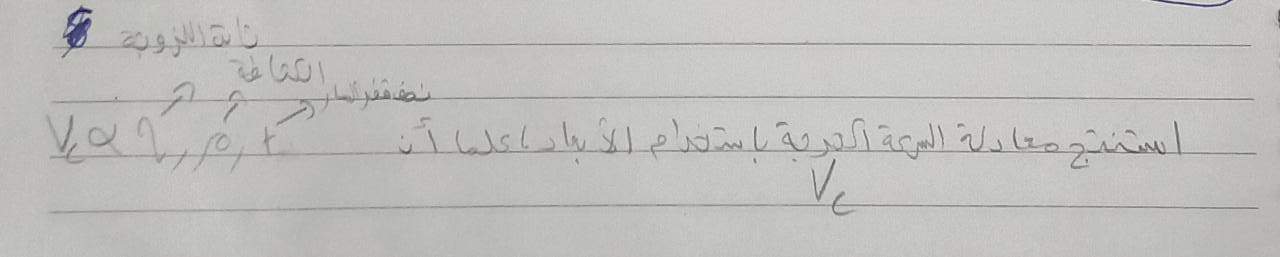 ثابت اللزوجة
الكثافة
نصف قطر المسار
استنتج معادلة السرعة الحرجة باستخدام الأبعاد علما أن Vc α η, ρ, r
Vc